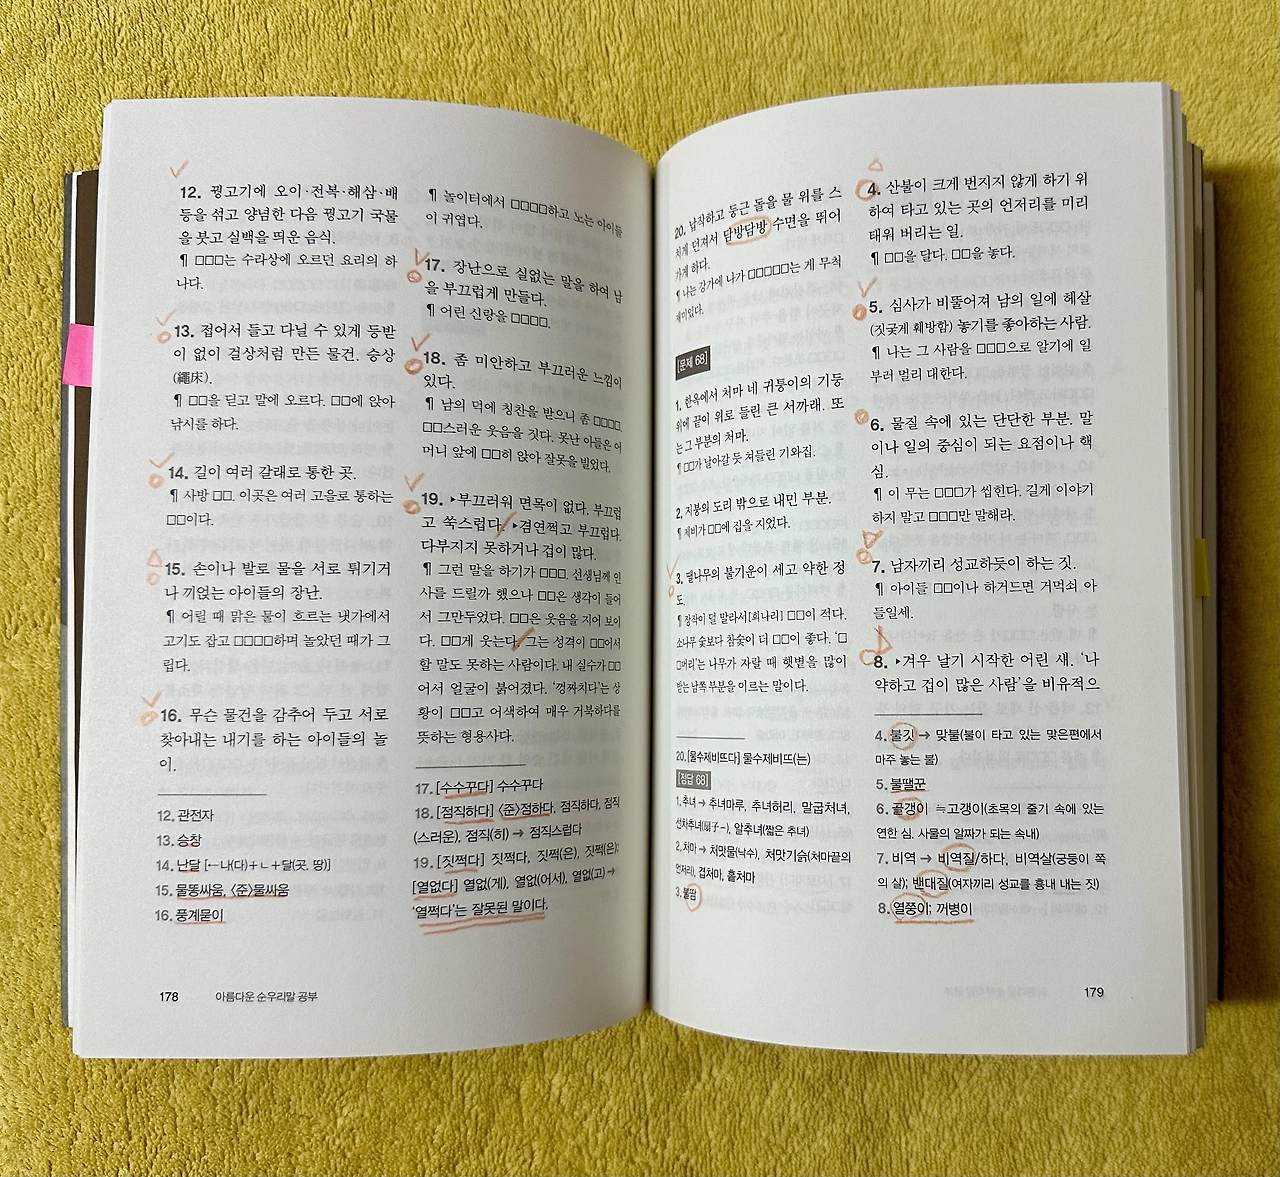 12. 꿩고기에 오이·전복·해삼·배
등을 섞고 양념한 다음 꿩고기 국물
을 붓고 실백을 띄운 음식.
¶ □□□는 수라상에 오르던 요리의 하
나다.
13. 접어서 들고 다닐 수 있게 등받
이 없이 걸상처럼 만든 물건. 승상
(繩床).
¶ □□을 딛고 말에 오르다. □□에 앉아
낚시를 하다.
14. 길이 여러 갈래로 통한 곳.
¶ 사방 □□. 이곳은 여러 고을로 통하는
□□이다.
15. 손이나 발로 물을 서로 튀기거
나 끼얹는 아이들의 장난.
¶ 어릴 때 맑은 물이 흐르는 냇가에서
고기도 잡고 □□□□하며 놀았던 때가 그
립다.
16. 무슨 물건을 감추어 두고 서로
찾아내는 내기를 하는 아이들의 놀
이.
12. 관전자
13. 승창
14. 난달 [←나(다)+ㄴ+달(곳, 땅)]
15. 물똥싸움, 〈준〉물싸움
16. 풍계묻이
¶ 놀이터에서 □□□□하고 노는 아이들
이 귀엽다.
17. 장난으로 실없는 말을 하여 남
을 부끄럽게 만들다.
¶ 어린 신랑을 □□□□.
18. 좀 미안하고 부끄러운 느낌이
있다.
¶ 남의 덕에 칭찬을 받으니 좀 □□□□.
□□스러운 웃음을 짓다. 못난 아들은 어
머니 앞에 □□히 앉아 잘못을 빌었다.
19. ▸부끄러워 면목이 없다. 부끄럽
고 쑥스럽다. ▸겸연쩍고 부끄럽다.
다부지지 못하거나 겁이 많다.
¶ 그런 말을 하기가 □□□. 선생님께 인
사를 드릴까 했으나 □□은 생각이 들어
서 그만두었다. □□은 웃음을 지어 보이
다. □□게 웃는다. 그는 성격이 □□어서
할 말도 못하는 사람이다. 내 실수가 □□
어서 얼굴이 붉어졌다. '껑짜치다'는 상
황이 □□고 어색하여 매우 거북하다를
뜻하는 형용사다.
17. [수수꾸다] 수수꾸다
18. [점직하다] 〈준〉점하다, 점직하다, 점직
(스러운), 점직(히) → 점직스럽다
19. [짓쩍다] 짓쩍다, 짓쩍(은), 짓쩍(은);
[열없다] 열없(게), 열없(어서), 열없(고) →
'열쩍다'는 잘못된 말이다.
178 아름다운 순우리말 공부
20. 납작하고 둥근 돌을 물 위를 스
치게 던져서 담방담방 수면을 뛰어
가게 하다.
¶ 나는 강가에 나가 □□□□□는 게 무척
재미있다.
[문제 68]
1. 한옥에서 처마 네 귀퉁이의 기둥
위에 끝이 위로 들린 큰 서까래. 또
는 그 부분의 처마.
¶ □□가 날아갈 듯 쳐들린 기와집.
2. 지붕의 도리 밖으로 내민 부분.
¶ 제비가 □□에 집을 지었다.
3. 땔나무의 불기운이 세고 약한 정
도.
¶ 장작이 덜 말라서[희나리] □□이 적다.
소나무 숯보다 참숯이 더 □□이 좋다. '□
□머리'는 나무가 자랄 때 햇볕을 많이
받는 남쪽 부분을 이르는 말이다.
20. [물수제비뜨다] 물수제비뜨(는)
[정답 68]
1. 추녀 → 추녀마루, 추녀허리, 말굽처녀,
선자추녀(扇子-), 알추녀(짧은 추녀)
2. 처마 → 처맛물(낙수), 처맛기슭(처마끝의
언저리), 겹처마, 홑처마
3. 불땀
4. 산불이 크게 번지지 않게 하기 위
하여 타고 있는 곳의 언저리를 미리
태워 버리는 일.
¶ □□을 달다. □□을 놓다.
5. 심사가 비뚤어져 남의 일에 헤살
(짓궂게 훼방함) 놓기를 좋아하는 사람.
¶ 나는 그 사람을 □□□으로 알기에 일
부러 멀리 대한다.
6. 물질 속에 있는 단단한 부분. 말
이나 일의 중심이 되는 요점이나 핵
심.
¶ 이 무는 □□□가 씹힌다. 길게 이야기
하지 말고 □□□만 말해라.
7. 남자끼리 성교하듯이 하는 짓.
¶ 아이들 □□이나 하거드면 거먹쇠 아
들일세.
8. ▸겨우 날기 시작한 어린 새. '나
약하고 겁이 많은 사람'을 비유적으
4. 불깃 → 맞불(불이 타고 있는 맞은편에서
마주 놓는 불)
5. 불땔꾼
6. 골갱이 ≒고갱이(초목의 줄기 속에 있는
연한 심. 사물의 알짜가 되는 속내)
7. 비역 → 비역질/하다, 비역살(궁둥이 쪽
의 살); 밴대질(여자끼리 성교를 흉내 내는 짓)
8. 열쭝이; 꺼병이
179